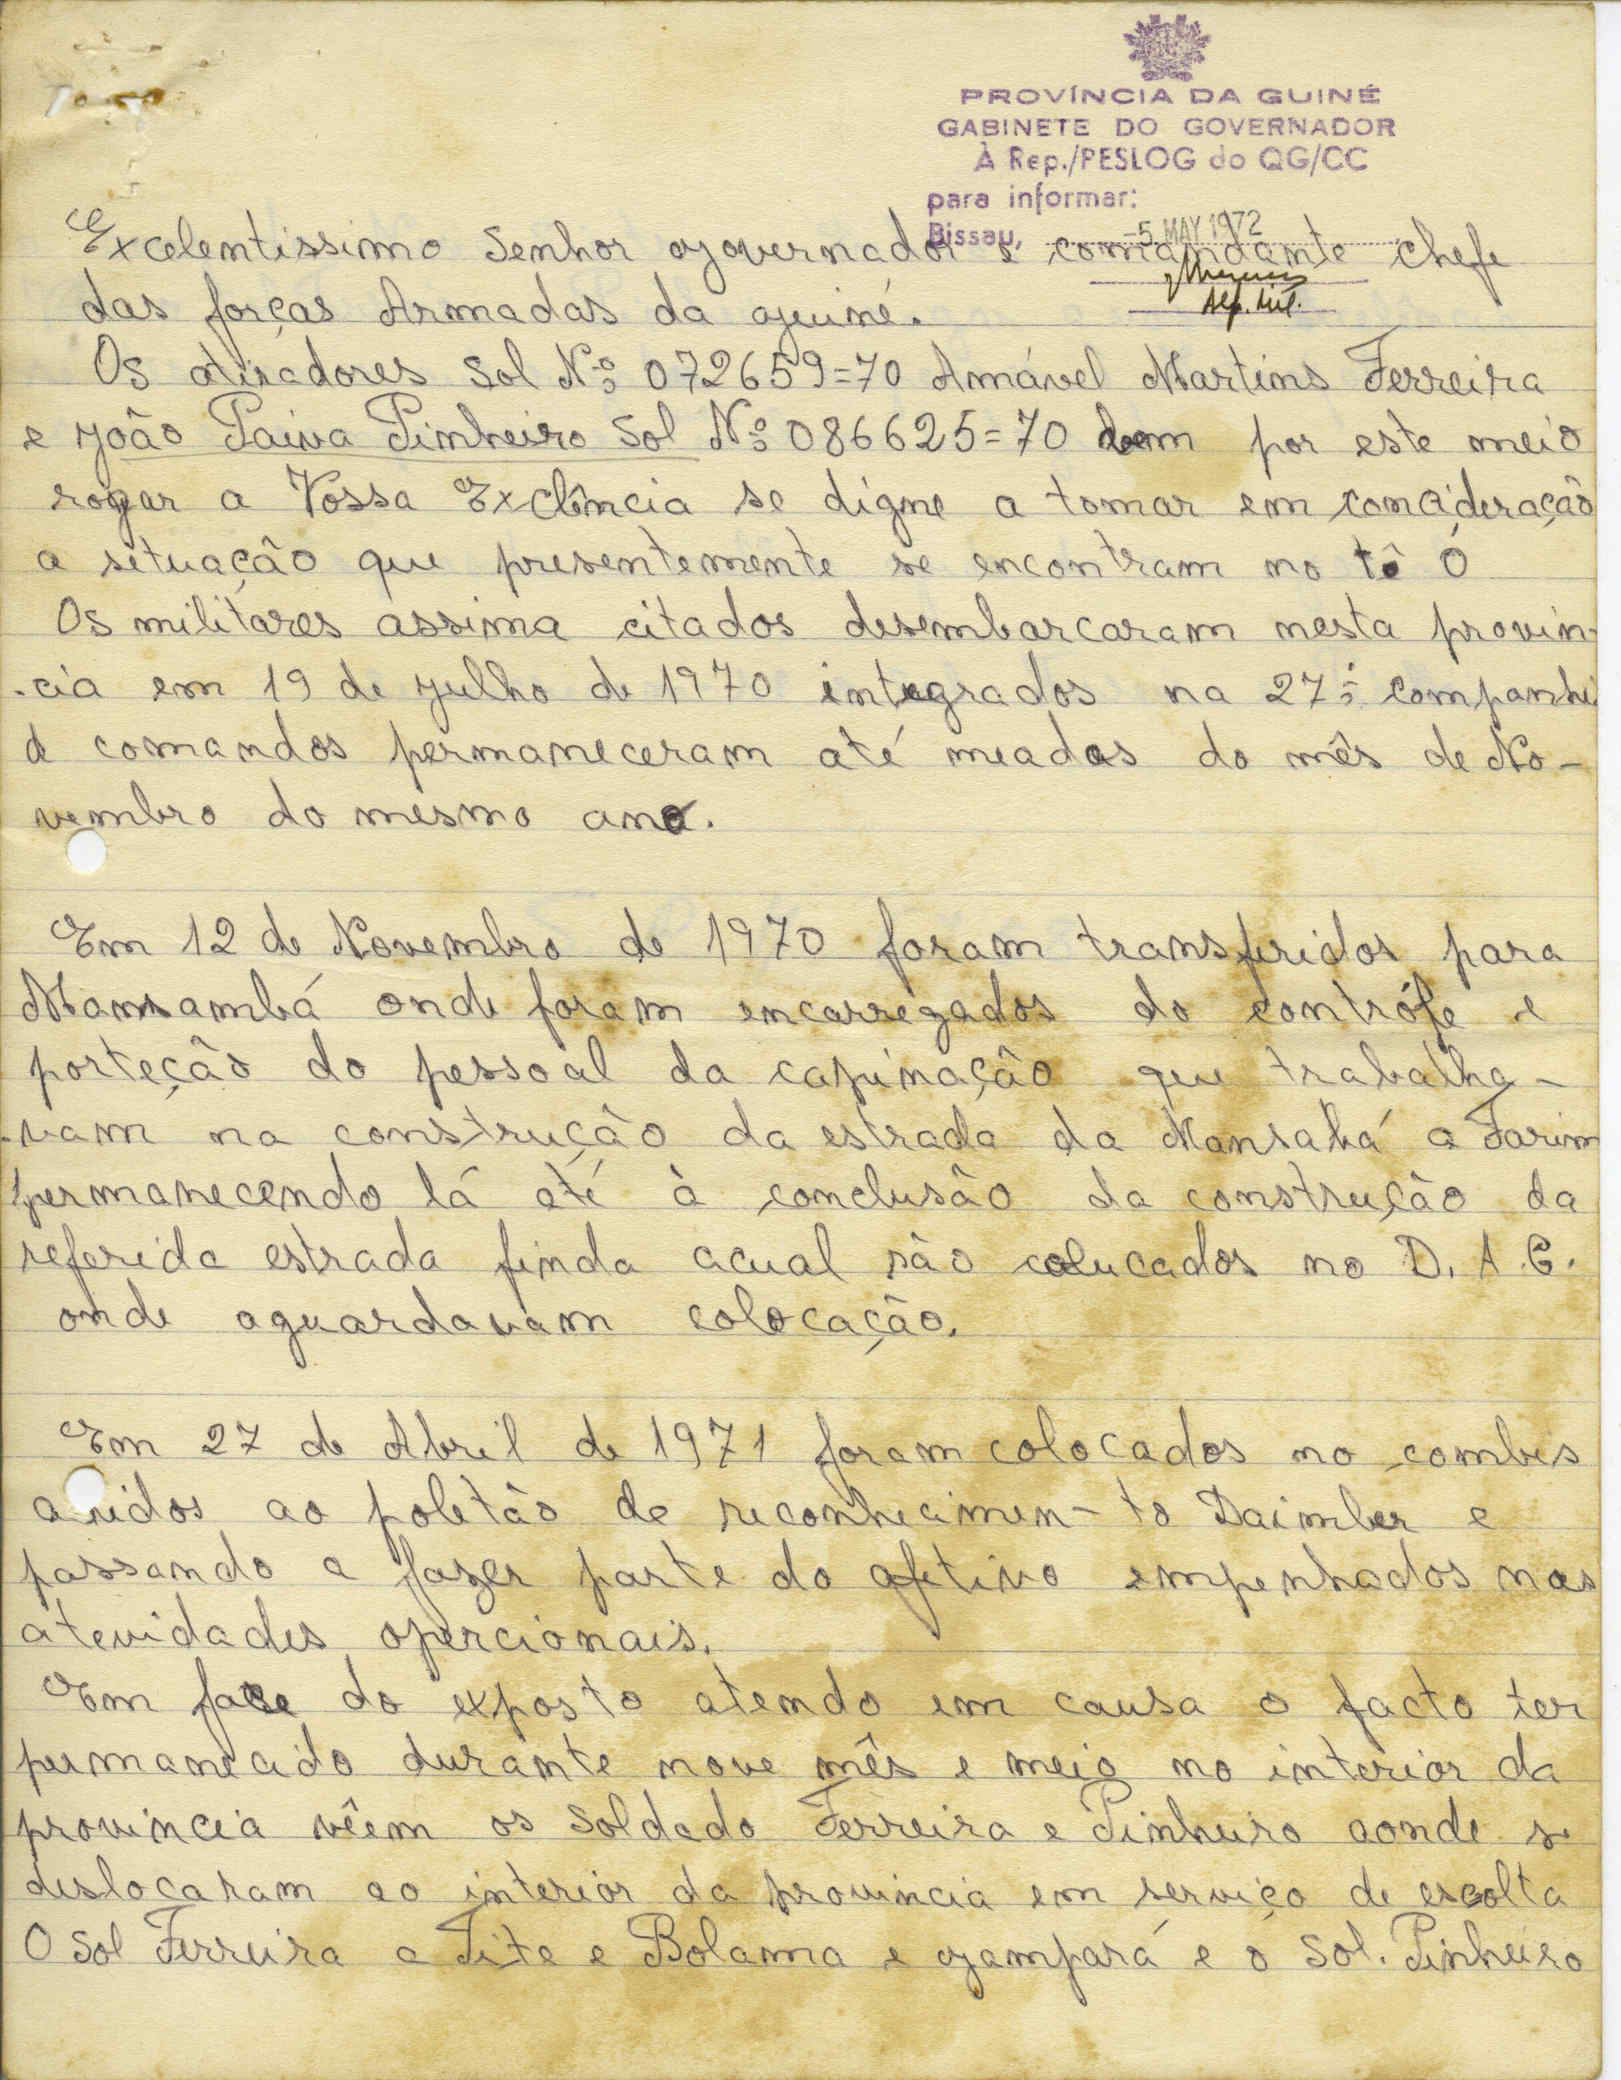 PROVÍNCIA DA GUINÉ
GABINETE DO GOVERNADOR
À Rep./PESLOG do QG/CC
para informar:
Bissau, -5. MAY 1972
Alf. Mil.
Excelentissimo Senhor Governador e comandante chefe
das forças Armadas da Guiné.
Os atiradores Sol Nº 072659=70 Amável Martins Ferreira
e João Paiva Pinheiro Sol Nº 086625=70 vem por este meio
rogar a Vossa Exclência se digne a tomar em concideração
a setuação que presentemente se encontram no tô Ó
Os militares assima citados desembarcaram nesta provin-
-cia em 19 de julho de 1970 integrados na 27ª companhi
d comandos permaneceram até meados do mês de No-
vembro do mesmo ano.
Em 12 de Novembro de 1970 foram transferidos para
Mansambá onde foram encarregados do contróle e
porteção do pessoal da capinação que trabalha-
-vam na construção da estrada da Mansabá a Farim
permanecendo lá até à conclusão da construção da
referida estrada finda acual são colucados no D. A. G.
onde aguardavam colocação.
Em 27 de Abril de 1971 foram colocados no combis
a idos ao poletão de reconhecimen-to Daimber e
passando a fazer parte do efetivo empenhados nas
atevidades opercionais.
Em face do exposto atendo em causa o facto ter
permanecido durante nove mês e meio no interior da
provincia vêem os soldado Ferreira e Pinheiro aonde se
deslocaram ao interior da provincia em serviço de escolta
O sol Ferreira a Tite e Bolama e Gampará e o Sol. Pinheiro